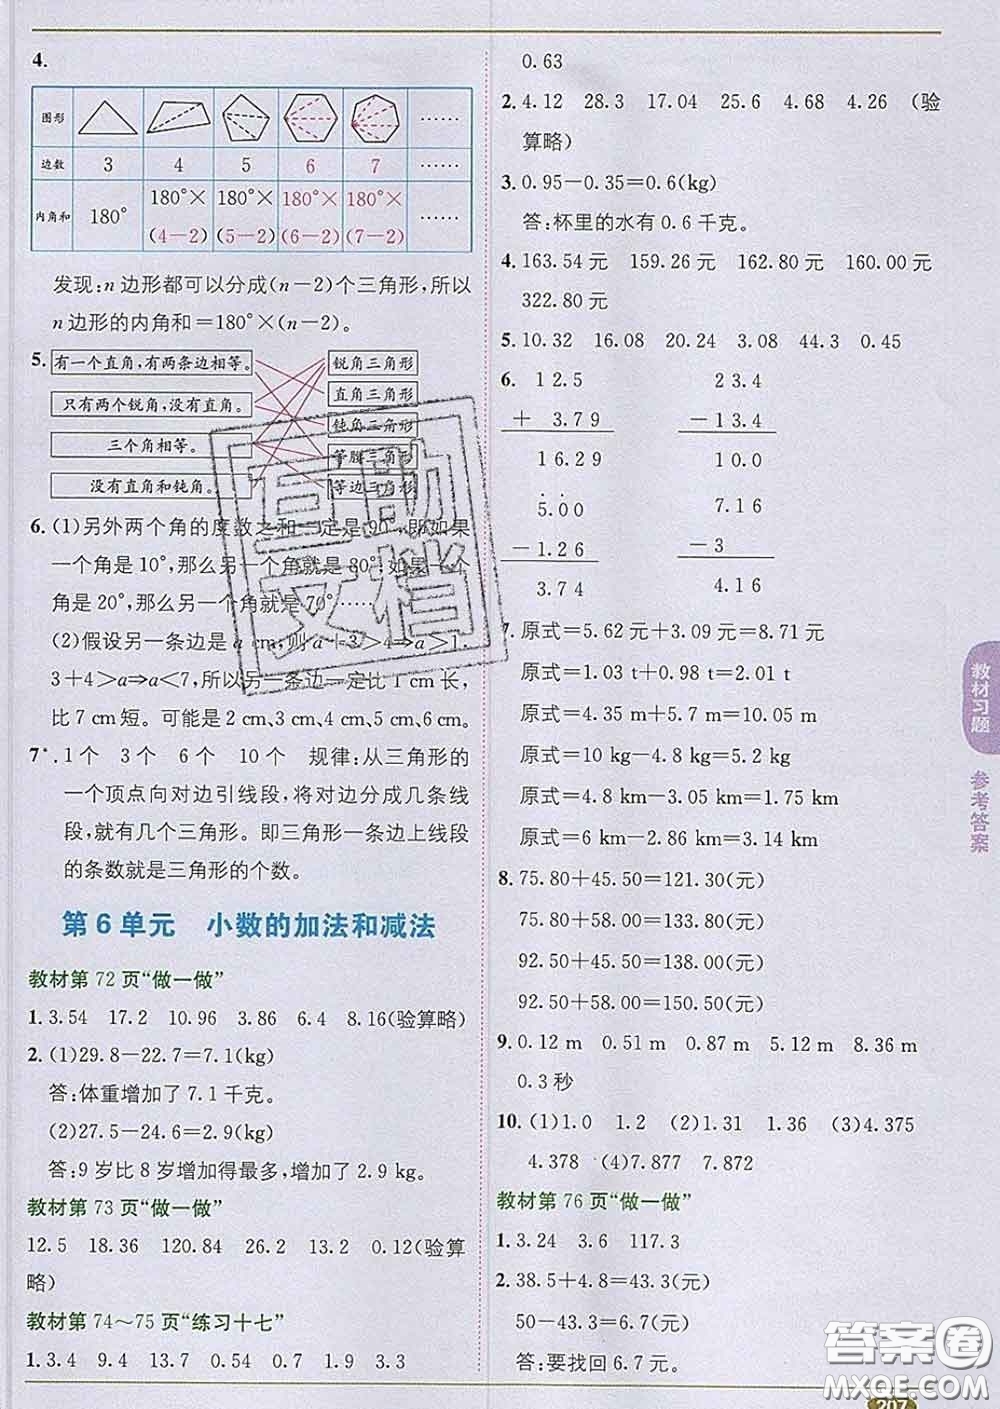 4.
图形 ……
边数 3 4 5 6 7 ……
内角和 180° 180°×(4－2) 180°×(5－2) 180°×(6－2) 180°×(7－2) ……
发现:n边形都可以分成(n－2)个三角形,所以
n边形的内角和＝180°×(n－2)。
5. 有一个直角,有两条边相等。 锐角三角形
直角三角形
只有两个锐角,没有直角。
钝角三角形
三个角相等。
等腰三角形
没有直角和钝角。 等边三角形
6. (1)另外两个角的度数之和一定是90°,即如果
一个角是10°,那么另一个角就是80°,如果一个
角是20°,那么另一个角就是70°……
(2)假设另一条边是a cm,则a＋3＞4⇒a＞1,
3＋4＞a⇒a＜7,所以另一条边一定比1 cm长,
比7 cm短。可能是2 cm、3 cm、4 cm、5 cm、6 cm。
7*. 1个 3个 6个 10个 规律:从三角形的
一个顶点向对边引线段,将对边分成几条线
段,就有几个三角形。即三角形一条边上线段
的条数就是三角形的个数。
第6单元 小数的加法和减法
教材第72页“做一做”
1. 3.54 17.2 10.96 3.86 6.4 8.16(验算略)
2. (1)29.8－22.7＝7.1(kg)
答:体重增加了7.1千克。
(2)27.5－24.6＝2.9(kg)
答:9岁比8岁增加得最多,增加了2.9 kg。
教材第73页“做一做”
12.5 18.36 120.84 26.2 13.2 0.12(验算
略)
教材第74～75页“练习十七”
1. 3.4 9.4 13.7 0.54 0.7 1.9 3.3
0.63
2. 4.12 28.3 17.04 25.6 4.68 4.26 (验
算略)
3. 0.95－0.35＝0.6(kg)
答:杯里的水有0.6千克。
4. 163.54元 159.26元 162.80元 160.00元
322.80元
5. 10.32 16.08 20.24 3.08 44.3 0.45
6. 12.5 23.4
＋ 3.79 －13.4
16.29 10.0
5.00 7.16
－1.26 －3
3.74 4.16
7. 原式＝5.62元＋3.09元＝8.71元
原式＝1.03 t＋0.98 t＝2.01 t
原式＝4.35 m＋5.70 m＝10.05 m
原式＝10 kg－4.8 kg＝5.2 kg
原式＝4.8 km－3.05 km＝1.75 km
原式＝6 km－2.86 km＝3.14 km
8. 75.80＋45.50＝121.30(元)
75.80＋58.00＝133.80(元)
92.50＋45.50＝138.00(元)
92.50＋58.00＝150.50(元)
9. 0.12 m 0.51 m 0.87 m 5.12 m 8.36 m
0.3秒
10. (1)1.0 1.2 (2)1.31 1.36 (3)4.375
4.378 (4)7.877 7.872
教材第76页“做一做”
1. 3.24 3.6 117.3
2. 38.5＋4.8＝43.3(元)
50－43.3＝6.7(元)
答:要找回6.7元。
教材习题
参考答案
互助文档
答案圈
MXQE.COM
207